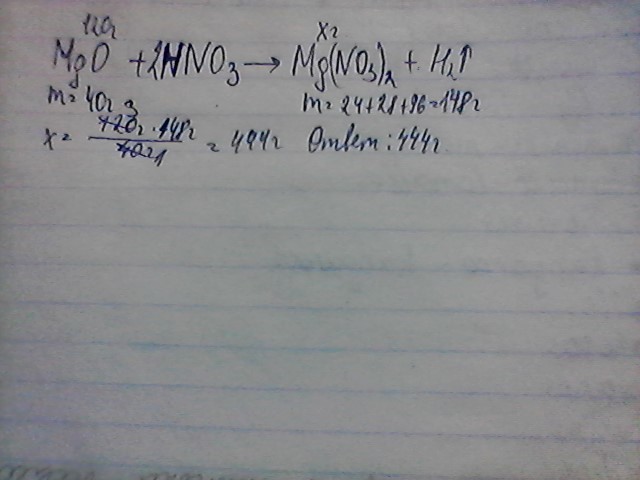 120г xг
MgO + 2HNO₃ → Mg(NO₃)₂ + H₂↑
m = 40г m = 24+28+96=148г
x = 120г · 148г / 40г = 444г Ответ: 444г